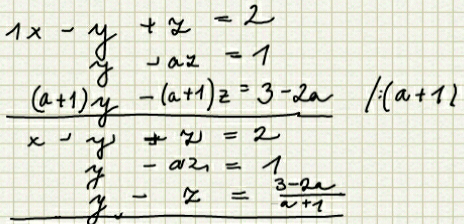 1x - y + z = 2
y - az = 1
(a+1)y - (a+1)z = 3-2a /:(a+1)
x - y + z = 2
y - az = 1
y - z = \frac{3-2a}{a+1}